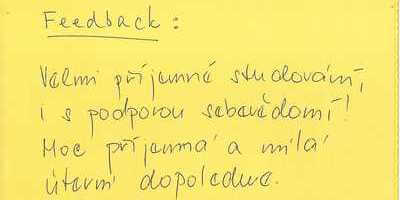 Feedback:
Velmi příjemné studování,
i s podporou sebevědomí!
Moc příjemná a milá
úterní dopoledne.